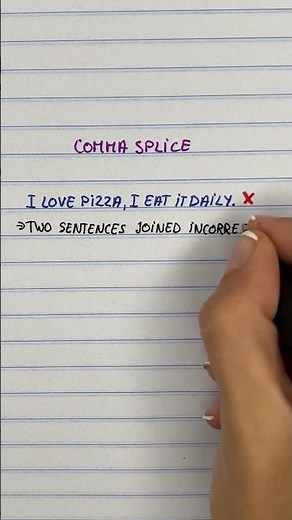 COMMA SPLICE
I LOVE PIZZA, I EAT IT DAILY. X
→ TWO SENTENCES JOINED